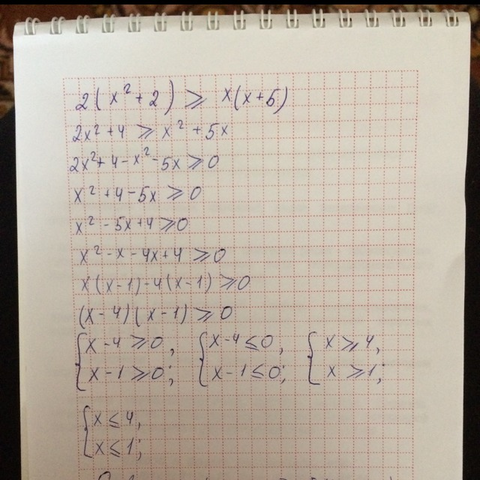 2(x²+2) ⩾ x(x+5)
2x²+4 ⩾ x²+5x
2x²+4-x²-5x ⩾ 0
x²+4-5x ⩾ 0
x²-5x+4 ⩾ 0
x²-x-4x+4 ⩾ 0
x(x-1)-4(x-1) ⩾ 0
(x-4)(x-1) ⩾ 0
{x-4 ⩾ 0, {x-4 ≤ 0, {x ⩾ 4,
x-1 ⩾ 0; x-1 ≤ 0; x ⩾ 1;
{x ≤ 4,
x ≤ 1;